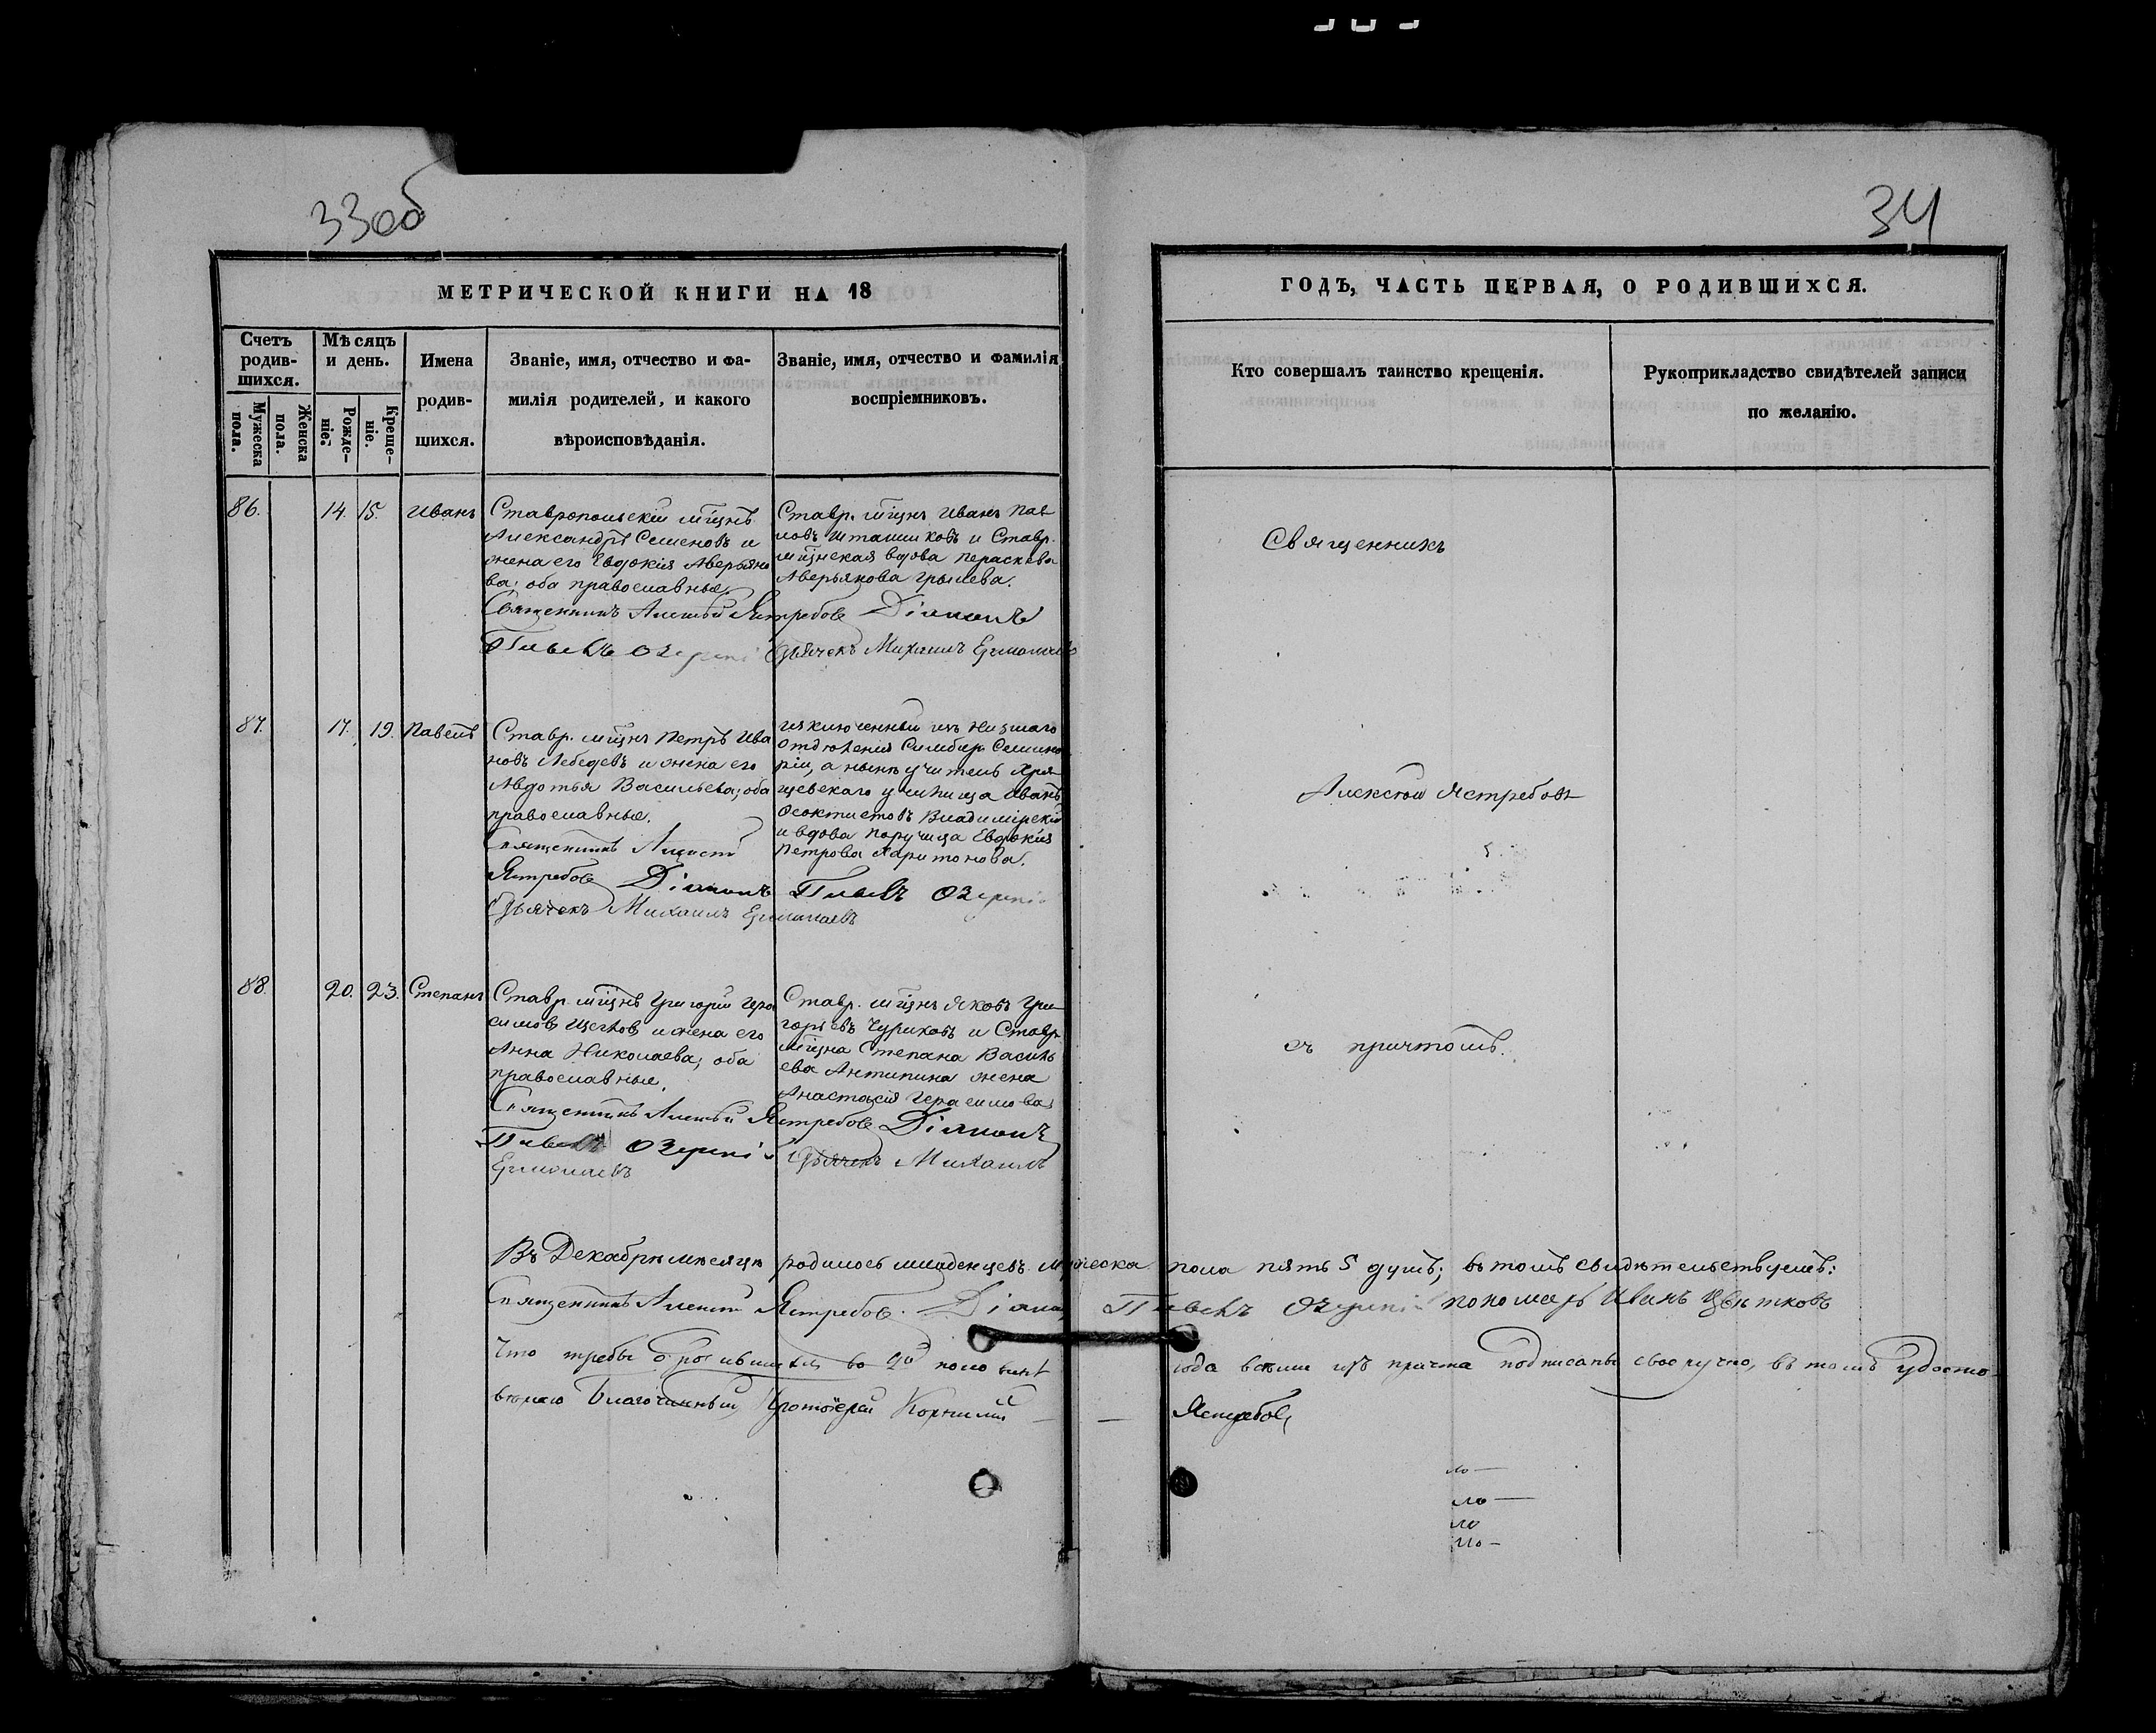 33об
34
МЕТРИЧЕСКОЙ КНИГИ НА 18
ГОДЪ, ЧАСТЬ ПЕРВАЯ, О РОДИВШИХСЯ.
Счетъ родив-шихся.
Мужеска пола.
Женска пола.
Мѣсяцъ и день.
Рожде-ніе.
Креще-ніе.
Имена родив-шихся.
Званіе, имя, отчество и фа-
милія родителей, и какого
вѣроисповѣданія.
Званіе, имя, отчество и фамилія
воспріемниковъ.
Кто совершалъ таинство крещенія.
Рукоприкладство свидѣтелей записи
по желанію.
86. 14. 15. Иванъ
Ставропольскій мѣщнъ
Александръ Семеновъ и
жена его Евдокія Аверьяно
ва; оба православные.
Ставр. мѣщнъ Иванъ Пав
ловъ и Ставр.
мѣщнская вдова Параскева
Аверьянова
Священникъ Алексѣй Ястребовъ Діаконъ
Павелъ Дьячекъ Михаилъ Ермолаевъ
Священникъ
87. 17. 19. Павелъ
Ставр. мѣщнъ Петръ Ива
новъ Лебедевъ и жена его
Авдотья Васильева; оба
православные.
Исключенный изъ Низшаго
отдѣленія Симбир. Семина
ріи, а нынѣ учитель Хря
щевскаго училища Иванъ
Ѳеоктистовъ Владимірскій
и вдова Евдокія
Петрова Харитонова.
Священникъ Алексѣй
Ястребовъ Діаконъ Павелъ
Дьячекъ Михаилъ Ермолаевъ
Алексѣй Ястребовъ
88. 20. 23. Степанъ
Ставр. мѣщнъ Григорій Гера
симовъ и жена его
Анна Николаева; оба
православные.
Ставр. мѣщнъ Яковъ Гри
горьевъ Чуриковъ и Ставр.
мѣщна Степана Василь
ева Антипина жена
Анастасія Герасимова
Священникъ Алексѣй Ястребовъ Діаконъ
Павелъ Дьячекъ Михаилъ
Ермолаевъ
съ причтомъ.
Въ Декабрѣ мѣсяцѣ родилось младенцевъ мужеска пола пять 5 душъ; въ томъ свидѣтельствуемъ:
Священникъ Алексѣй Ястребовъ. Діаконъ Павелъ пономарь Иванъ Цвѣтковъ
Что требы о родившихся во 2й половинѣ года всѣми изъ причта подписаны своеручно, въ томъ удосто-
вѣряю Благочинный, Протоіерей Корнилій — — Ястребовъ